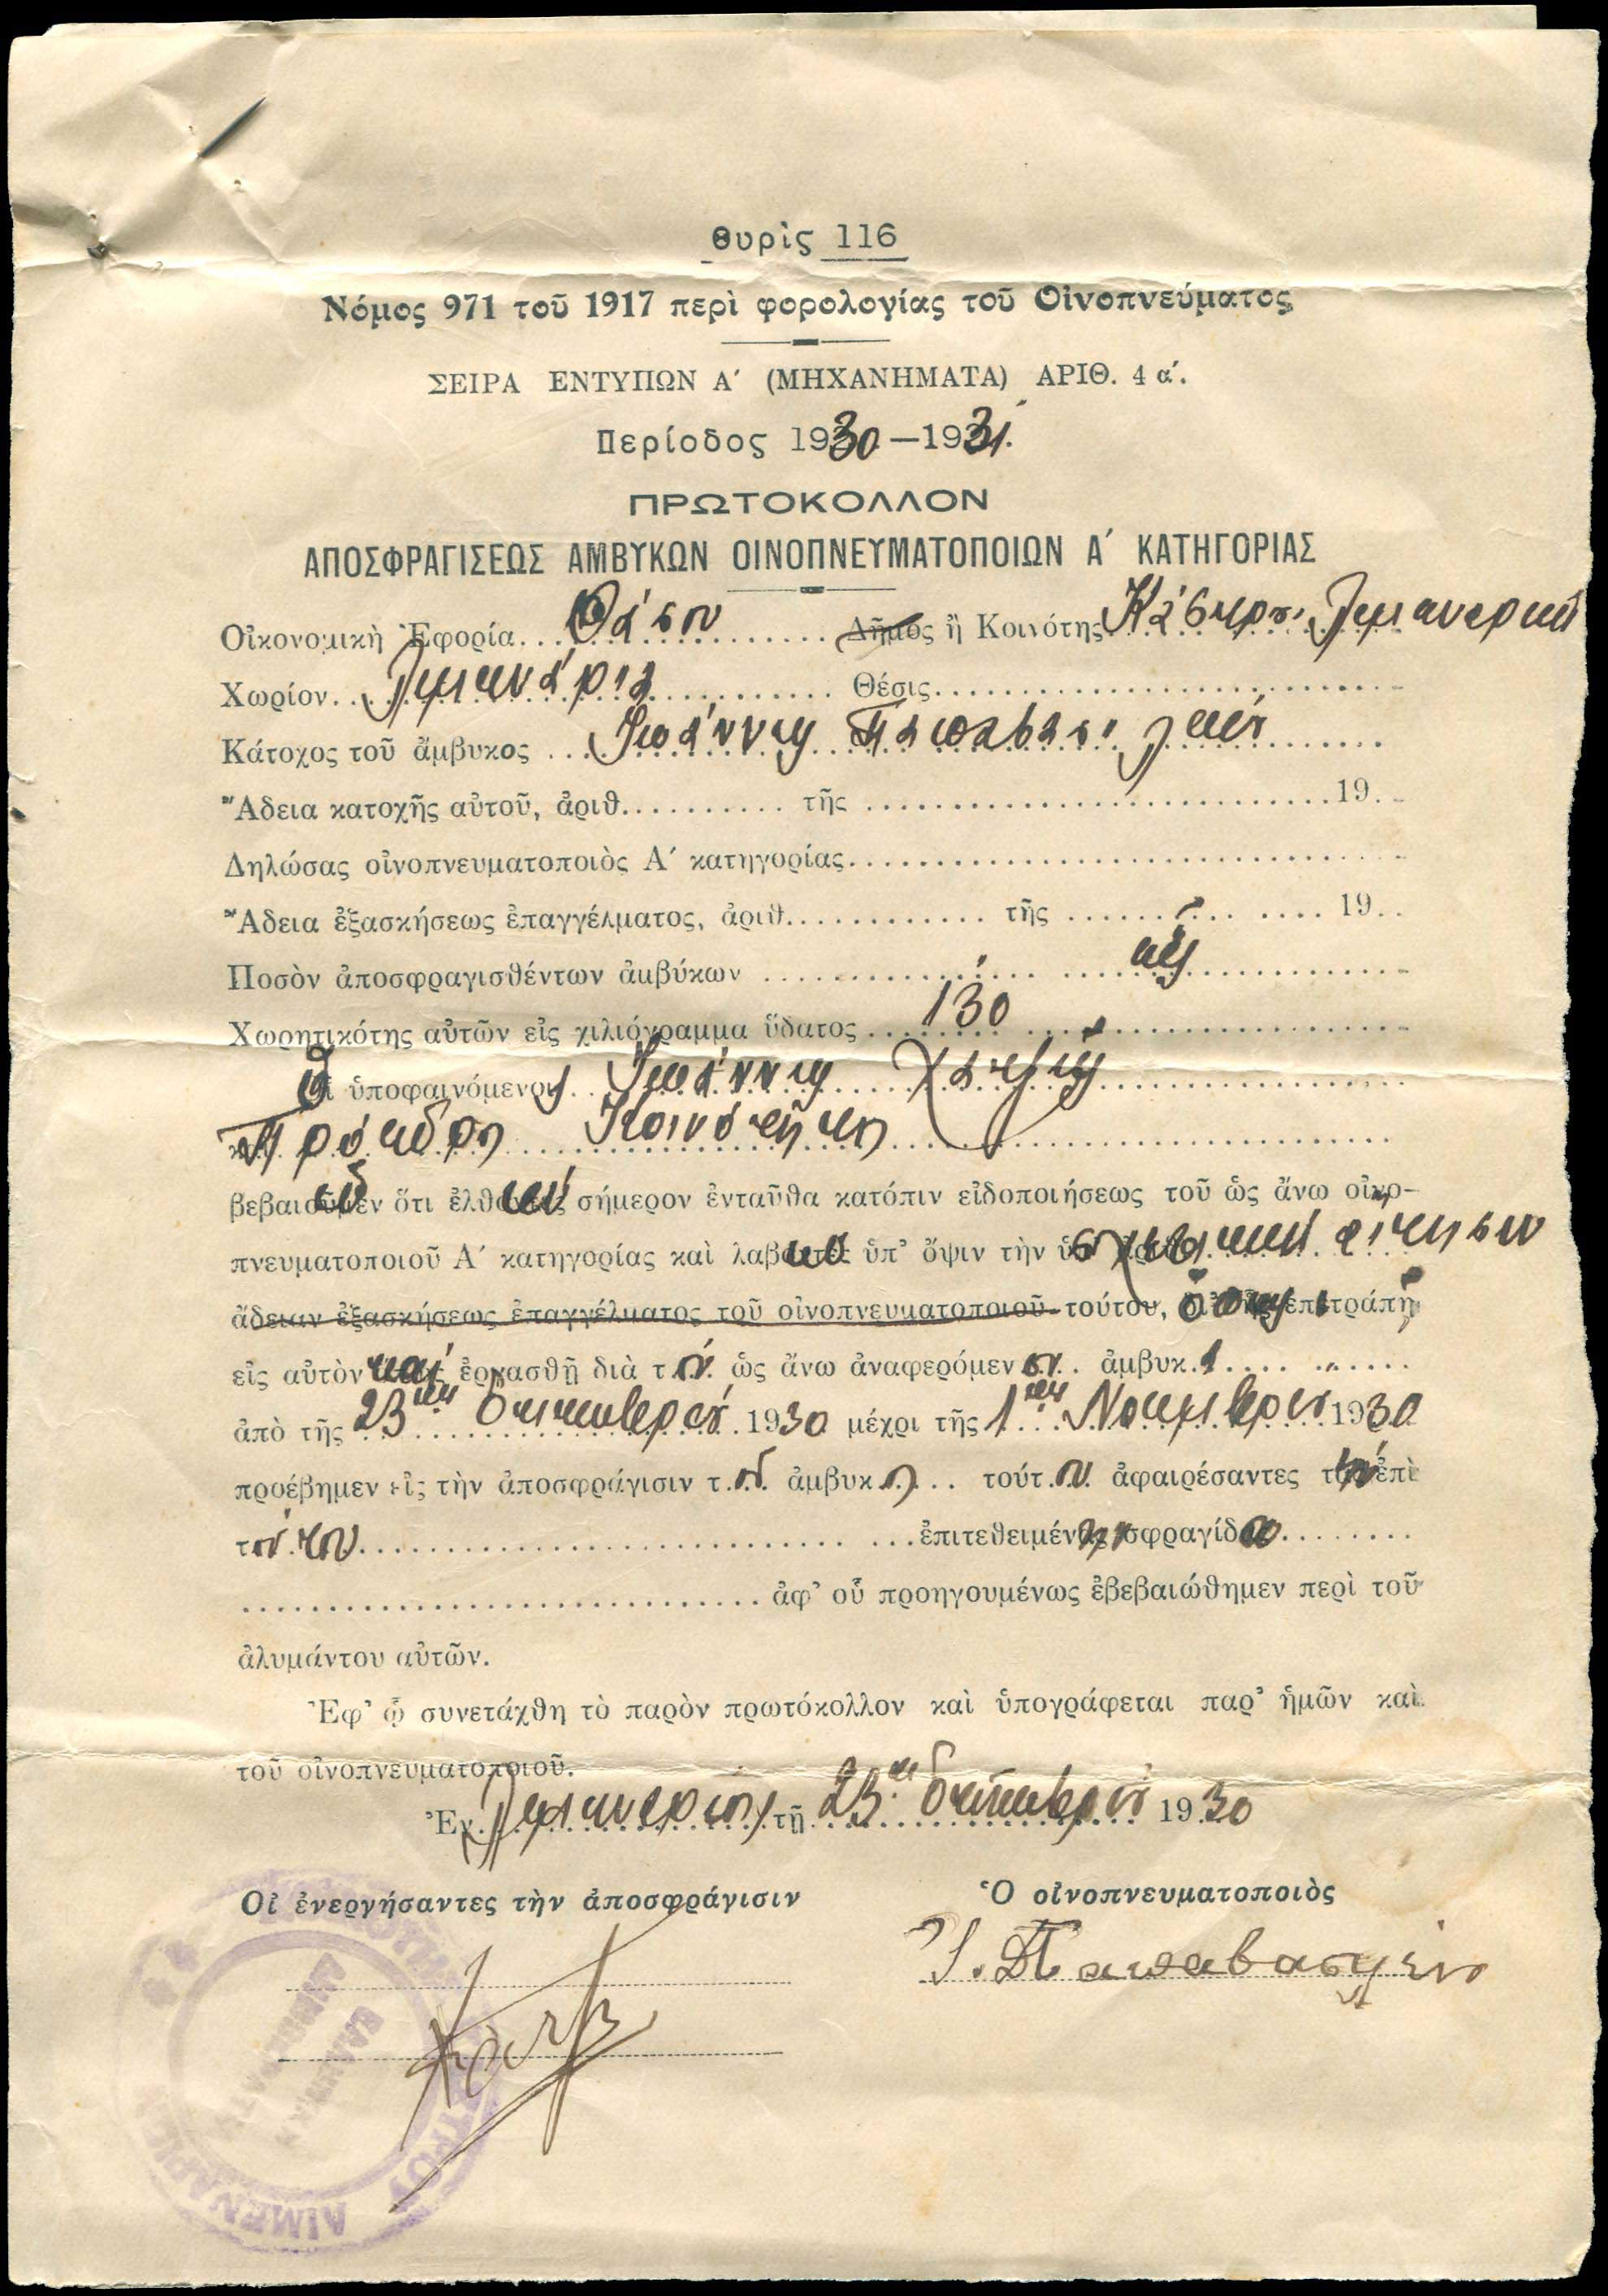 Θυρὶς 116
Νόμος 971 τοῦ 1917 περὶ φορολογίας τοῦ Οἰνοπνεύματος
ΣΕΙΡΑ ΕΝΤΥΠΩΝ Α΄ (ΜΗΧΑΝΗΜΑΤΑ) ΑΡΙΘ. 4 α΄.
Περίοδος 1930—1931.
ΠΡΩΤΟΚΟΛΛΟΝ
ΑΠΟΣΦΡΑΓΙΣΕΩΣ ΑΜΒΥΚΩΝ ΟΙΝΟΠΝΕΥΜΑΤΟΠΟΙΩΝ Α΄ ΚΑΤΗΓΟΡΙΑΣ
Οἰκονομικὴ Ἐφορία Θάσου Δῆμος ἢ Κοινότης Κάστρου Λιμεναρίων
Χωρίον Λιμενάρια Θέσις
Κάτοχος τοῦ ἄμβυκος Ἰωάννης Παπαβασιλείου
Ἄδεια κατοχῆς αὐτοῦ, ἀριθ. τῆς 19
Δηλώσας οἰνοπνευματοποιὸς Α΄ κατηγορίας
Ἄδεια ἐξασκήσεως ἐπαγγέλματος, ἀριθ. τῆς 19
Ποσὸν ἀποσφραγισθέντων ἀμβύκων εἷς
Χωρητικότης αὐτῶν εἰς χιλιόγραμμα ὕδατος 130
Ὁ ὑποφαινόμενος Ἰωάννης
Πρόεδρος Κοινότητος
βεβαιοῦμεν ὅτι ἐλθὼν σήμερον ἐνταῦθα κατόπιν εἰδοποιήσεως τοῦ ὡς ἄνω οἰνο-
πνευματοποιοῦ Α΄ κατηγορίας καὶ λαβὼν ὑπ' ὄψιν τὴν αἴτησιν
ἄδειαν ἐξασκήσεως ἐπαγγέλματος τοῦ οἰνοπνευματοποιοῦ τούτου, ἐπιτράπῃ
εἰς αὐτὸν ἐργασθῇ διὰ τοῦ ὡς ἄνω ἀναφερόμενου ἀμβυκ.
ἀπὸ τῆς 23ης Ὀκτωβρίου 1930 μέχρι τῆς 1ης Νοεμβρίου 1930
προέβημεν εἰς τὴν ἀποσφράγισιν τοῦ ἀμβυκος τούτου ἀφαιρέσαντες τὴν ἐπὶ
τούτου ἐπιτεθειμένην σφραγίδα
ἀφ' οὗ προηγουμένως ἐβεβαιώθημεν περὶ τοῦ
ἀλυμάντου αὐτῶν.
Ἐφ' ᾧ συνετάχθη τὸ παρὸν πρωτόκολλον καὶ ὑπογράφεται παρ' ἡμῶν καὶ
τοῦ οἰνοπνευματοποιοῦ.
Ἐν Λιμεναρίοις τῇ 23ῃ Ὀκτωβρίου 1930
Οἱ ἐνεργήσαντες τὴν ἀποσφράγισιν Ὁ οἰνοπνευματοποιὸς
Ἰ. Παπαβασιλείου